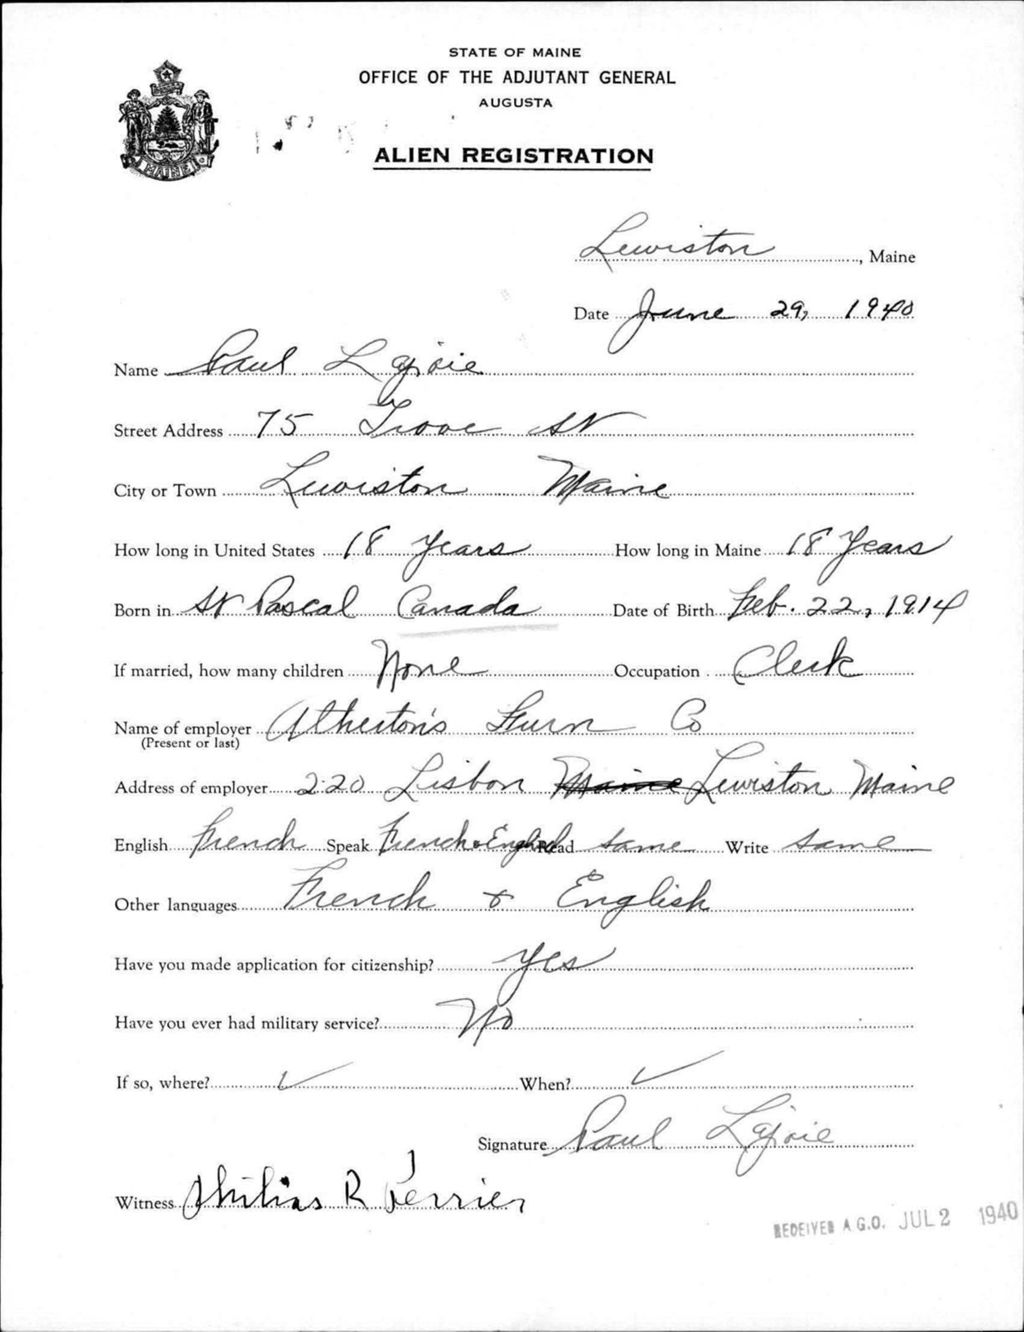 STATE OF MAINE
OFFICE OF THE ADJUTANT GENERAL
AUGUSTA
ALIEN REGISTRATION
MAINE
Lewiston, Maine
Date June 29, 1940
Name Paul Lajoie
Street Address 75 Grove St
City or Town Lewiston Maine
How long in United States 18 years How long in Maine 18 Years
Born in St Pascal Canada Date of Birth Feb. 22, 1914
If married, how many children None Occupation Clerk
Name of employer Atherton's Furn Co
(Present or last)
Address of employer 220 Lisbon Maine Lewiston Maine
English French Speak French & English Read same Write same
Other languages French & English
Have you made application for citizenship? Yes
Have you ever had military service? No
If so, where? ✓ When? ✓
Signature Paul Lajoie
Witness Philias R
RECEIVED A.G.O. JUL 2 1940